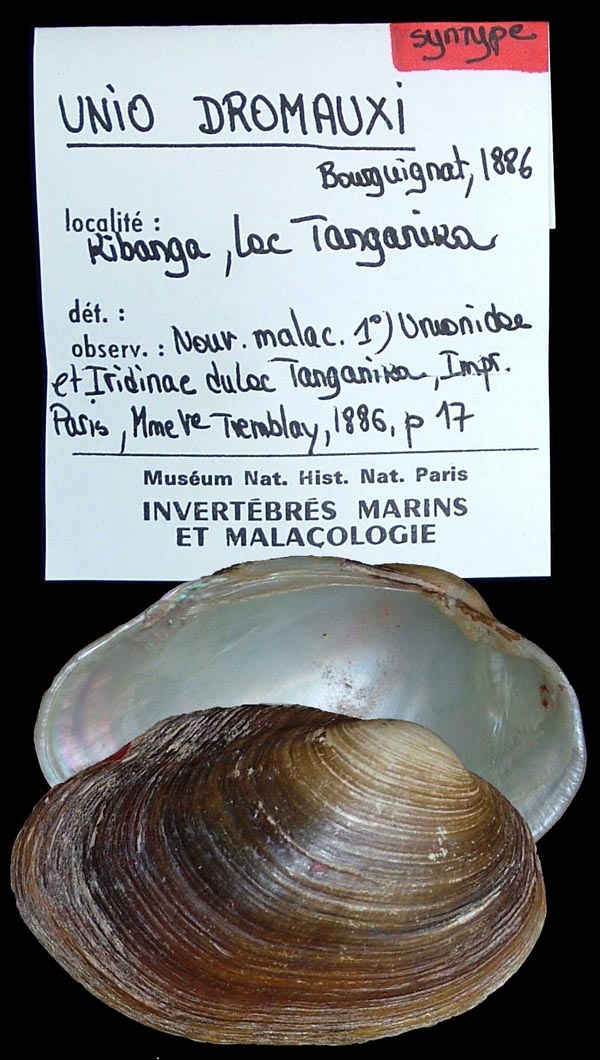 syntype
UNIO DROMAUXI
Bourguignat, 1886
localité :
Kibanga, lac Tanganika
dét. :
observ. : Nouv. malac. 1°) Unionidae
et Iridinae du lac Tanganika, Impr.
Paris, Mme Ve Tremblay, 1886, p 17
Muséum Nat. Hist. Nat. Paris
INVERTÉBRÉS MARINS
ET MALAÇOLOGIE